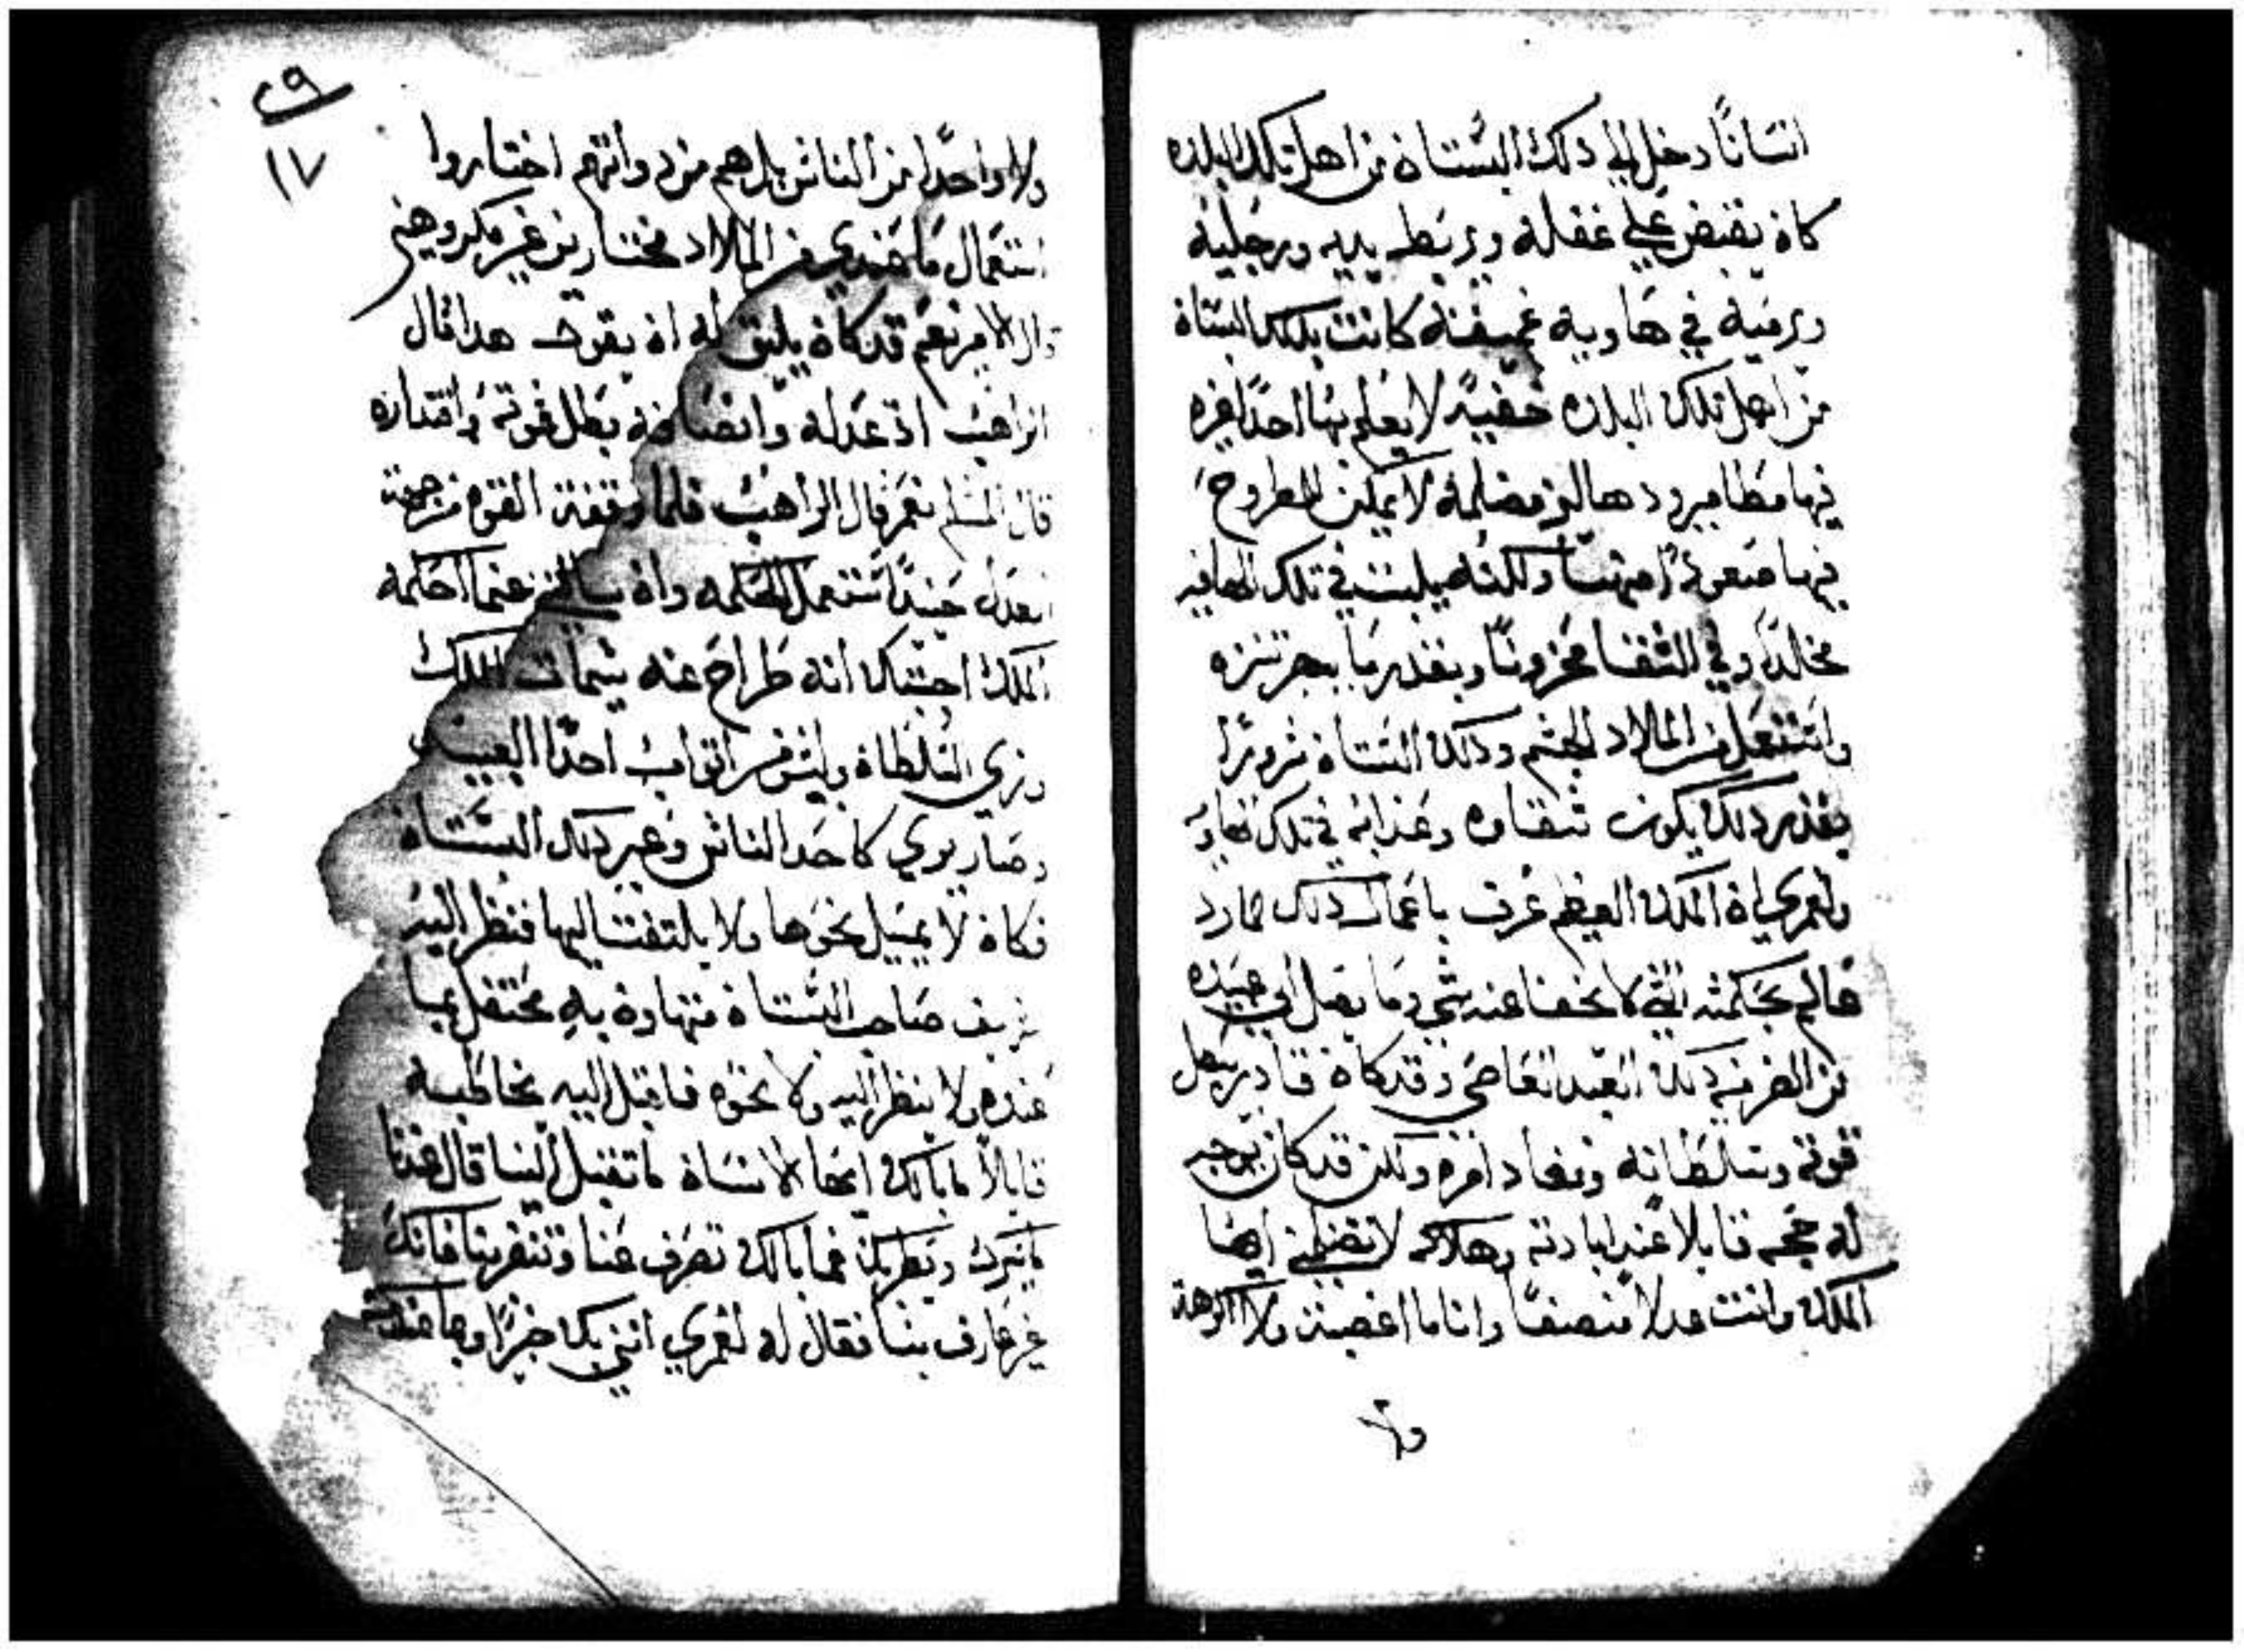 انسانًا دخل الي ذلك البستان من اهل تلك البلده
كان يقبض علي غفله ويربط يديه ورجليه
ويرميه في هاويه عميقه كانت بتلك البستان
من اهل تلك البلده خفيةً لا يعلم بها احدًا غيره
فيها مطامير ودهاليز مضلمه لا يمكن المطروح
فيها صعودًا منها ولكنه يلبث في تلك الهاويه
مخلدًا وفي الشقا محزونًا وبقدر ما
واستعمل من الملاد الجسم وذلك البستان سرورًا
بقدر ذلك يكون شقاوه وعذابه في تلك الهاويه
ولعمري ان الملك العظيم عرف باعمال ذلك المارد
عالم بحكمته التي لا يخفا عنه شي وما يصل الي عبيده
من الضر من ذلك العبد العاصي وقد كان قادر بفعل
قوته وسلطانه ونفاد امره ولكن قد كان يوجب
له حجه قايلا عند ابادته وهلاكه لا تضلمني ايها
الملك وانت عدلا منصفًا وانا ما اغصبت ولا اكرهت
ولا
٢٩
١٧
ولا واحدًا من الناس بل هم من دواتهم اختاروا
استعمال ما عندي من الملاد مختارين غير مكروهين
قال الامير نعم قد كان يليق له ان يقول هدا قال
الراهب ان عدله وانصافه بطل قوته واقتداره
قال المسلم نعم قال الراهب فلما وقفة القوه من جهة
العدل حينيدًا استعمل الحكمه وان سالتني عن ما احكمه
الملك اجبتك انه طراح عنه سمات الملك
وزي السلطان ولبس من اتواب احدًا العبيد
وصار يري كاحد الناس وعبر دلك البستان
فكان لا يميل نحوها ولا يلتفت اليها فنظر اليه
صاحب البستان متهاون به محتفل بما
عنده ولا ينظر اليه ولا نحوه فاقبل اليه يخاطبه
قايلاً ما بالك ايها الانسان ما تقبل الينا قال عندنا
ما يسرك ويطربك فما بالك تصرف عنا وتنفر بنا فانك
غير عارف بنا فقال له لعمري انني بك خبيرًا وبما عندك